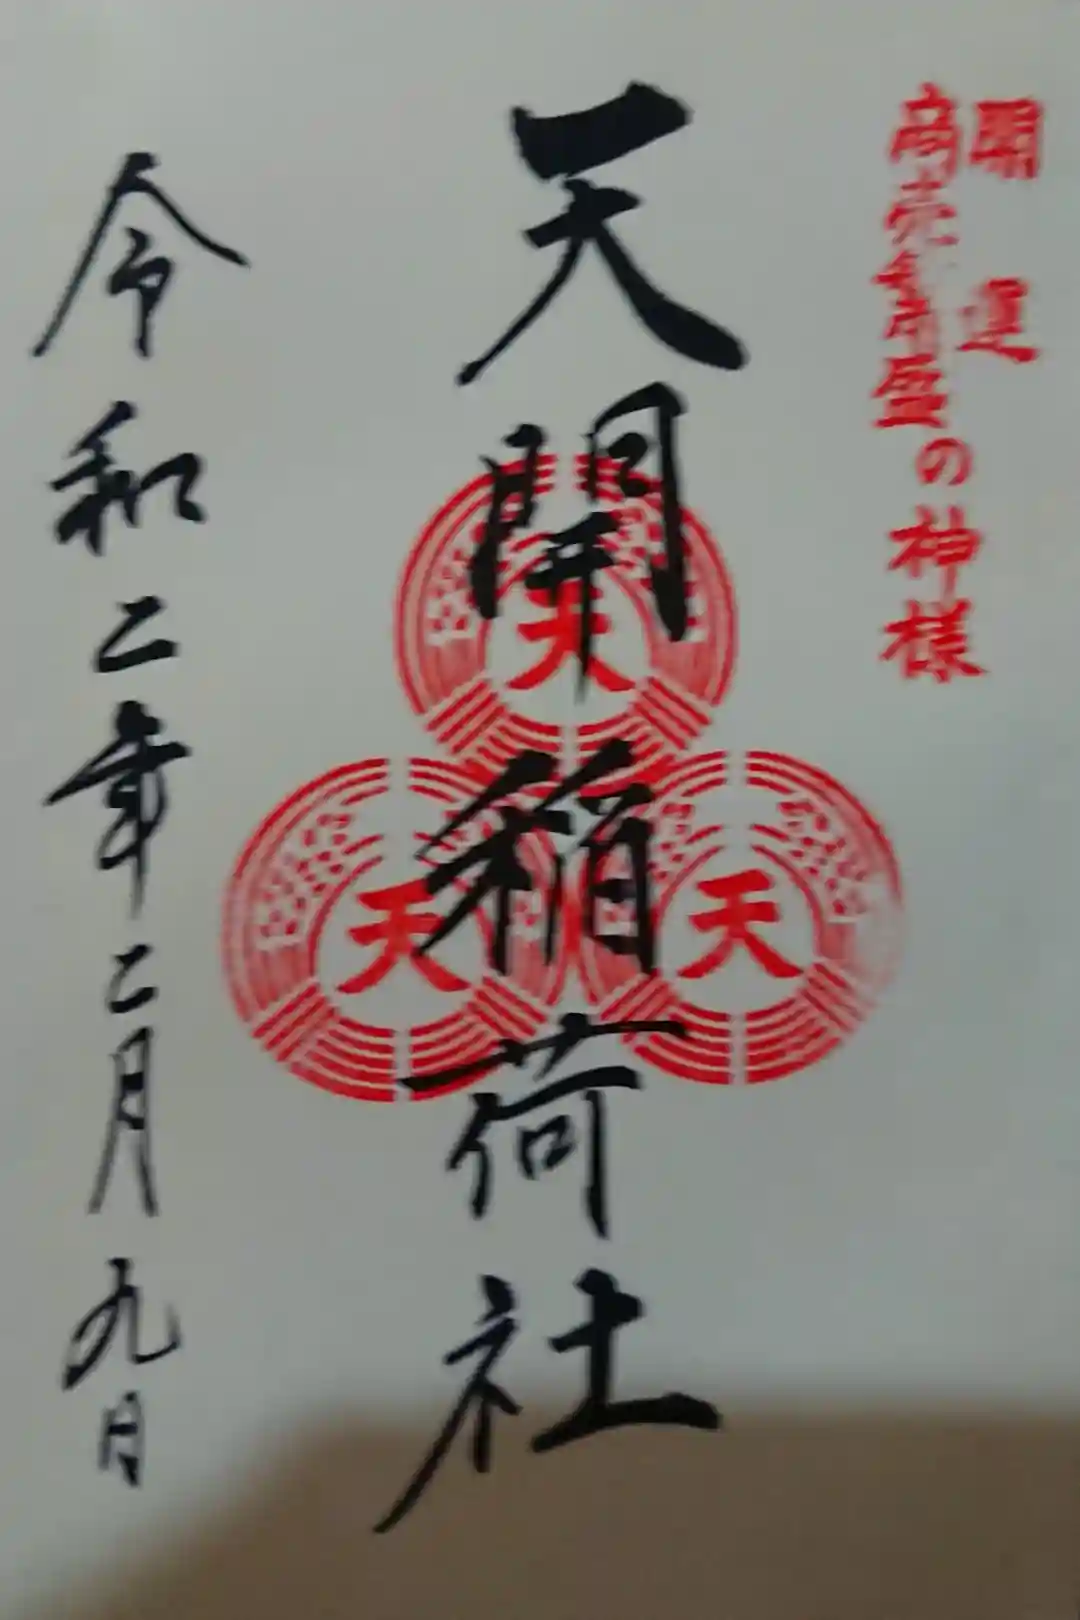 開運
商売繁盛の神様
天開稲荷社
天
天
天
令和二年二月九日